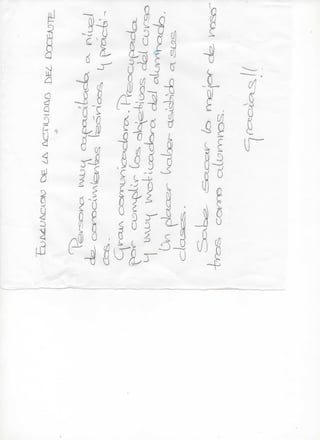 EVALUACION DE LA ACTIVIDAD DEL DOCENTE
Persona muy capacitada a nivel
de conocimientos teóricos y prácti-
cos.
Gran comunicadora. Preocupada
por cumplir los objetivos del curso
y muy motivadora del alumnado.
Un placer haber asistido a sus
clases.
Sabe sacar lo mejor de noso
tros como alumnos.
Gracias!!